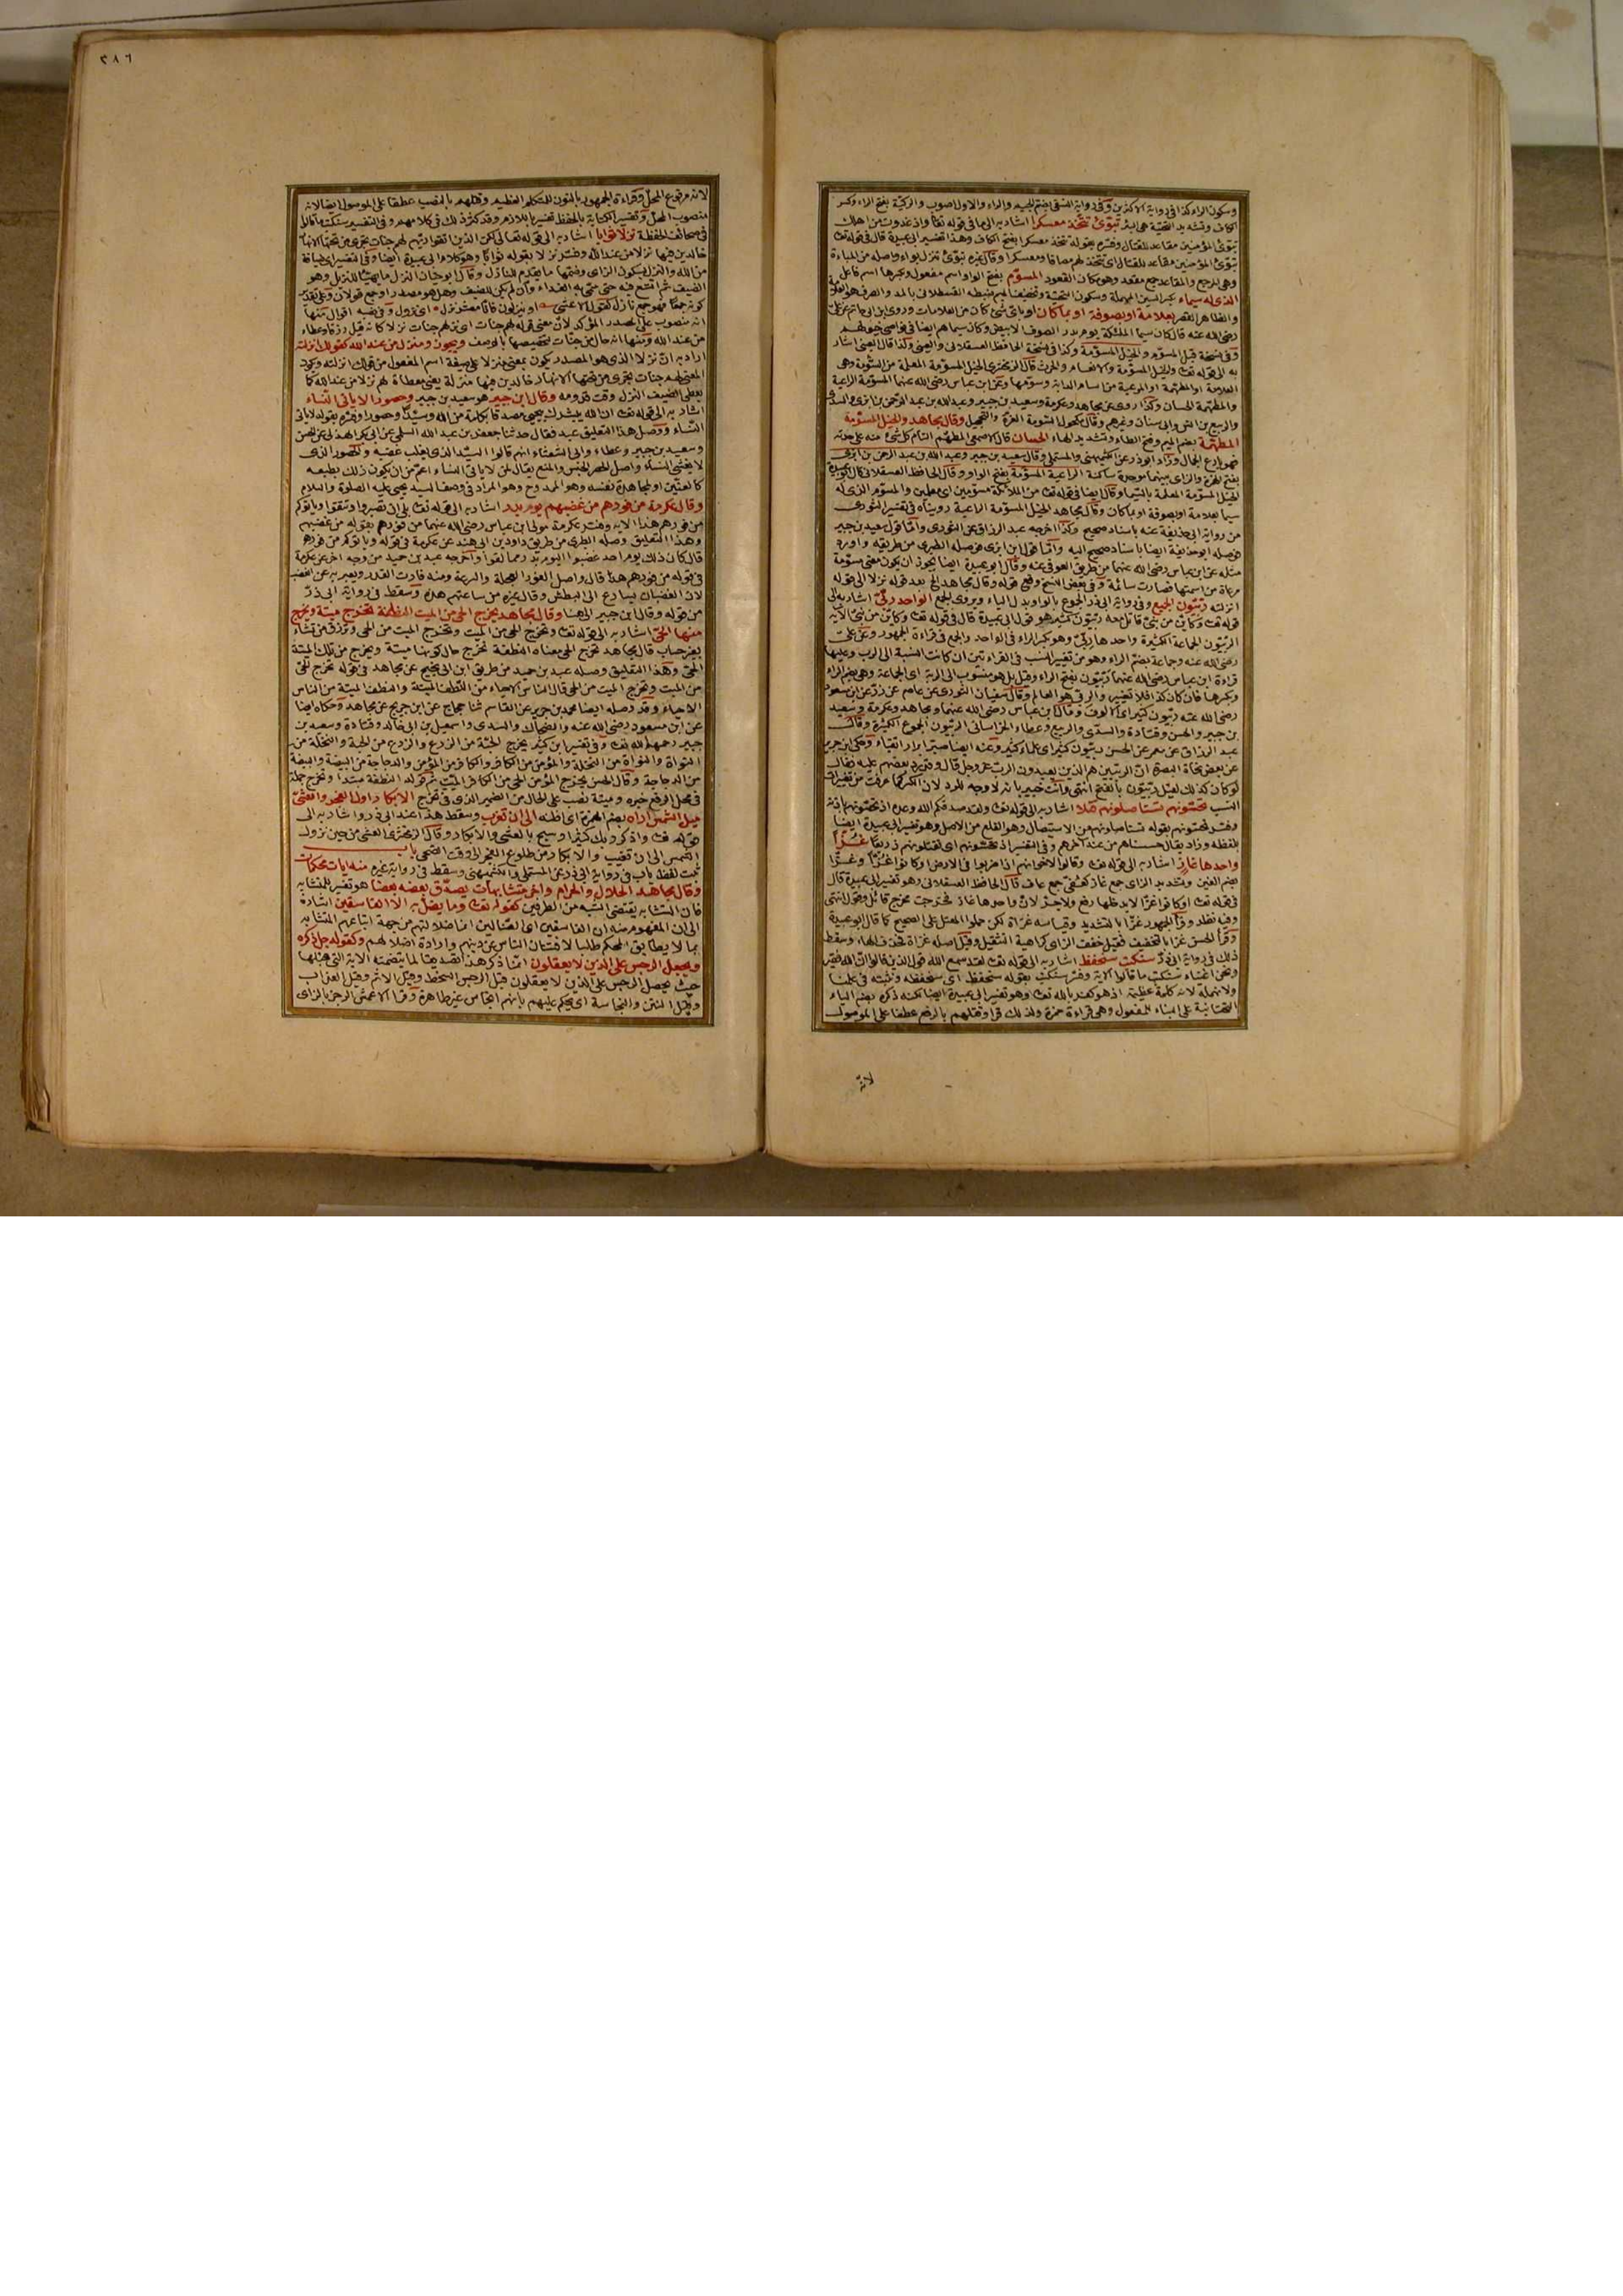 وسكون الراء كذا في رواية الاكثرين وفي رواية النسفي بضم الجيم والراء والاول اصوب والركية بفتح الراء وكسر
الكاف وتشديد التحتية هي البئر تبوئ تتخذ معسكرا اشار به الى ما في قوله تعالى واذ غدوت من اهلك
تبوئ المؤمنين مقاعد للقتال وفسره بقوله تتخذ معسكرا بفتح الكاف وهذا تفسير ابي عبيدة قال في قوله تعالى
تبوئ المؤمنين مقاعد للقتال اي تتخذ لهم مصافا ومعسكرا وقال غيره تبوئ تنزل بواء واصله من المباءة
وهي المرجع والمقاعد جمع مقعد وهو مكان القعود المسوم بفتح الواو اسم مفعول وبكسرها اسم فاعل
الذي له سيماء بكسر السين المهملة وسكون التحتية وتخفيف الميم ضبطه القسطلاني بالمد والصرف
والظاهر القصر بعلامة او بصوفة او بما كان او باي شئ كان من العلامات وروى ابن ابي حاتم عن علي
رضى الله عنه قال كان سيما الملئكة يوم بدر الصوف الابيض وكان سيماهم ايضا في نواصي خيولهم
وفي نسخة قبل المسوم والخيل المسومة وكذا في نسخة الحافظ العسقلاني والعيني وكذا قال العيني اشار
به الى قوله تعالى والخيل المسومة والانعام والحرث قال الزمخشري الخيل المسومة المعلمة من السومة وهي
العلامة او المطهمة او المرعية من اسام الدابة وسومها وعن ابن عباس رضى الله عنهما المسومة الراعية
والمطهمة الحسان وكذا روى عن مجاهد وعكرمة وسعيد بن جبير وعبد الله بن عبد الرحمن بن ابزى والسدي
والربيع بن انس وابي سنان وغيرهم وقال مكحول المسومة الغرة والتحجيل وقال مجاهد والخيل المسومة
المطهمة بضم الميم وفتح الطاء وتشديد الهاء الحسان قال الاصمعي المطهم التام كل شئ منه على حدته
فهو بارع الجمال وزاد ابو ذر عن الكشميهني والمستملي وقال سعيد بن جبير وعبد الله بن عبد الرحمن بن ابزى
بفتح الهمزة والزاي بينهما موحدة ساكنة الراعية المسومة بفتح الواو وقال الحافظ العسقلاني قال ابو عبيدة
الخيل المسومة المعلمة بالسيما وقال ايضا في قوله تعالى من الملائكة مسومين اي معلمين والمسوم الذي له
سيما بعلامة او بصوفة او بما كان وقال مجاهد الخيل المسومة الراعية رويناه في تفسير الثوري
من رواية ابي حذيفة عنه باسناد صحيح وكذا اخرجه عبد الرزاق عن الثوري واما قول سعيد بن جبير
فوصله ابو حذيفة ايضا باسناد صحيح اليه واما قول ابن ابزى فوصله الطبري من طريقه واورد
مثله عن ابن عباس رضى الله عنهما من طريق العوفي عنه وقال ابو عبيدة ايضا يجوز ان يكون معنى مسومة
مرعاة من اسمتها فصارت سائمة وفي بعض النسخ وقع قوله وقال مجاهد الخ بعد قوله نزلا الى قوله
انزلته ربيون الجميع وفي رواية ابي ذر الجموع بالواو بدل الياء ويروى الجمع الواحد ربي اشار به الى
قوله تعالى وكاين من نبي قاتل معه ربيون كثير هو قول ابي عبيدة قال في قوله تعالى وكاين من نبي الآية
الربيون الجماعة الكثيرة واحدها ربي وهو بكسر الراء في الواحد والجمع في قراءة الجمهور وعن علي
رضى الله عنه وجماعة بضم الراء وهو من تغيير النسب في القراءتين ان كانت النسبة الى الرب وعليها
قراءة ابن عباس رضى الله عنهما ربيون بفتح الراء وقيل بل هو منسوب الى الربة اي الجماعة وهي بضم الراء
وبكسرها فان كان كذا فلا تغيير والربي هو العالم وقال سفيان الثوري عن عاصم عن زر عن ابن مسعود
رضى الله عنه ربيون كثير اي الوف وقال ابن عباس رضى الله عنهما ومجاهد وعكرمة وسعيد
بن جبير والحسن وقتادة والسدي والربيع وعطاء الخراساني الربيون الجموع الكثيرة وقال
عبد الرزاق عن معمر عن الحسن ربيون كثير اي علماء كثير وعنه ايضا صبر ابرار اتقياء وحكى ابن جرير
عن بعض نحاة البصرة ان الربيين هم الذين يعبدون الرب عز وجل قال ورد بعضهم عليه فقال
لو كان كذلك لقيل ربيون بالفتح انتهى وانت خبير بانه لا وجه للرد لان الكسر كما عرفت من تغييرات
النسب تحسونهم تستاصلونهم قتلا اشار به الى قوله تعالى ولقد صدقكم الله وعده اذ تحسونهم باذنه
وفسر تحسونهم بقوله تستاصلونهم من الاستيصال وهو القلع من الاصل وهو تفسير ابي عبيدة ايضا
بلفظه وزاد يقال حسسناهم من عند آخرهم وفي التفسير اذ تحسونهم اي تقتلونهم ذريعا غزا
واحدها غاز اشار به الى قوله تعالى وقالوا لاخوانهم اذا ضربوا في الارض او كانوا غزا وغزا
بضم الغين وتشديد الزاي جمع غاز كعفي جمع عاف قال الحافظ العسقلاني وهو تفسير ابي عبيدة قال
في قوله تعالى او كانوا غزا لا يدخلها رفع ولا جر لان واحدها غاز فخرجت مخرج قائل وقول انتهى
وفيه نظر وقرأ الجمهور غزا بالتشديد وقياسه غزاة لكن حملوا المعتل على الصحيح كما قال ابو عبيدة
وقرأ الحسن غزا بالتخفيف فقيل خفف الزاي كراهية التثقيل وقيل اصله غزاة فحذف الهاء وسقط
ذلك في رواية ابي ذر سنكتب سنحفظ اشار به الى قوله تعالى لقد سمع الله قول الذين قالوا ان الله فقير
ونحن اغنياء سنكتب ما قالوا الآية وفسر سنكتب بقوله سنحفظ اي سنحفظه ونثبته في علمنا
ولا نهمله لانه كلمة عظيمة اذ هو كفر بالله تعالى وهو تفسير ابي عبيدة ايضا لكنه ذكره بضم الياء
التحتانية على البناء للمفعول وهي قراءة حمزة ولذلك قرأ وقتلهم بالرفع عطفا على الموصول
لانه
٣٨٦
لانه مرفوع المحل وقراءة الجمهور بالنون للمتكلم العظيم وقتلهم بالنصب عطفا على الموصول ايضا لانه
منصوب المحل وتفسير الكتابة بالحفظ تفسير باللازم وقد كثر ذلك في كلامهم وفي التفسير سنكتب ما قالوا
في صحائف الحفظة نزلا ثوابا اشار به الى قوله تعالى لكن الذين اتقوا ربهم لهم جنات تجري من تحتها الانهار
خالدين فيها نزلا من عند الله وفسر نزلا بقوله ثوابا وهو كلام ابي عبيدة ايضا وفي التفسير اي ضيافة
من الله والنزل بسكون الزاي وضمها ما يقدم للنازل وقال ابو حيان النزل ما يهيأ للنزيل وهو
الضيف ثم اتسع فيه حتى سمي به الغداء وان لم يكن للضيف وهل هو مصدر او جمع قولان وعلى تقدير
كونه جمعا فهو جمع نازل كقول الاعشى او ينزلون فانا معشر نزل اي نزول وفي نصبه اقوال منها
انه منصوب على المصدر المؤكد لان معنى قوله لهم جنات اي نزلهم جنات نزلا كانه قيل رزقا وعطاء
من عند الله ومنها انه حال من جنات لتخصيصها بالوصف ويجوز ومنزل من عند الله كقولك انزلته
اراد به ان نزلا الذي هو المصدر يكون بمعنى منزلا على صيغة اسم المفعول من قولك انزلته ويكون
المعنى لهم جنات تجري من تحتها الانهار خالدين فيها منزلة يعني معطاة لهم نزلا من عند الله كما
يعطى الضيف النزل وقت قدومه وقال ابن جبير هو سعيد بن جبير وحصورا لا ياتي النساء
اشار به الى قوله تعالى ان الله يبشرك بيحيى مصدقا بكلمة من الله وسيدا وحصورا وفسره بقوله لا ياتي
النساء ووصل هذا التعليق عبد فقال حدثنا جعفر بن عبد الله السلمي عن ابي بكر الهذلي عن الحسن
وسعيد بن جبير وعطاء وابي الشعثاء انهم قالوا السيد الذي يغلب غضبه والحصور الذي
لا يغشى النساء واصل الحصر الحبس والمنع يقال لمن لا ياتي النساء اعم من ان يكون ذلك بطبعه
كالعنين او لمجاهدة نفسه وهو الممدوح وهو المراد في وصف السيد يحيى عليه الصلوة والسلام
وقال عكرمة من فورهم من غضبهم يوم بدر اشار به الى قوله تعالى بلى ان تصبروا وتتقوا وياتوكم
من فورهم هذا الآية وفسر عكرمة مولى ابن عباس رضى الله عنهما من فورهم بقوله من غضبهم
وهذا التعليق وصله الطبري من طريق داود بن ابي هند عن عكرمة في قوله وياتوكم من فورهم
قال كان ذلك يوم احد غضبوا ليوم بدر مما لقوا واخرجه عبد بن حميد من وجه آخر عن عكرمة
في قوله من فورهم هذا قال واصل الفور العجلة والسرعة ومنه فارت القدر ويعبر به عن الغضب
لان الغضبان يسارع الى البطش وقال غيره من ساعتهم هذه وسقط في رواية ابي ذر
من قوله وقال ابن جبير الى هنا وقال مجاهد يخرج الحي من الميت النطفة تخرج ميتة ويخرج
منها الحي اشار به الى قوله تعالى وتخرج الحي من الميت وتخرج الميت من الحي وترزق من تشاء
بغير حساب قال مجاهد تخرج الحي معناه النطفة تخرج حال كونها ميتة ويخرج من تلك الميتة
الحي وهذا التعليق وصله عبد بن حميد من طريق ابن ابي نجيح عن مجاهد في قوله تخرج الحي
من الميت وتخرج الميت من الحي قال الناس الاحياء من النطف الميتة والنطف الميتة من الناس
الاحياء وقد وصله ايضا محمد بن جرير عن القاسم ثنا حجاج عن ابن جريج عن مجاهد وحكاه ايضا
عن ابن مسعود رضى الله عنه والضحاك والسدي واسمعيل بن ابي خالد وقتادة وسعيد بن
جبير رحمهم الله تعالى وفي تفسير ابن كثير يخرج الحبة من الزرع والزرع من الحبة والنخلة من
النواة والنواة من النخلة والمؤمن من الكافر والكافر من المؤمن والدجاجة من البيضة والبيضة
من الدجاجة وقال الحسن يخرج المؤمن الحي من الكافر الميت ثم قوله النطفة مبتدأ وتخرج جملة
في محل الرفع خبره وميتة نصب على الحال من الضمير الذي في تخرج الابكار اول الفجر والعشي
ميل الشمس اراه بضم الهمزة اي اظنه الى ان تغرب وسقط هذا عند ابي ذر واشار به الى
قوله تعالى واذكر ربك كثيرا وسبح بالعشي والابكار وقال الزمخشري العشي من حين نزول
الشمس الى ان تغيب والابكار من طلوع الفجر الى وقت الضحى باب
ثبت لفظ باب في رواية ابي ذر عن المستملي والكشميهني وسقط في رواية غيره منه ايات محكمات
وقال مجاهد الحلال والحرام واخر متشابهات يصدق بعضه بعضا هو تفسير للمتشابه
فان التشابه يقتضي الشبه من الطرفين كقوله تعالى وما يضل به الا الفاسقين اشارة
الى ان المفهوم منه ان الفاسقين اي الضالين انما ضلالتهم من جهة اتباعهم المتشابه
بما لا يطابق المحكم طلبا لافتتان الناس عن دينهم وارادة اضلالهم وكقوله جل ذكره
ويجعل الرجس على الذين لا يعقلون انما ذكر هذا تصديقا لما يتضمنه الآية التي قبلها
حيث يجعل الرجس على الذين لا يعقلون قيل الرجس السخط وقيل الاثم وقيل العذاب
وقيل النتن والنجاسة اي يحكم عليهم بانهم انجاس غير طاهرة وقرأ الاعمش الرجز بالزاي